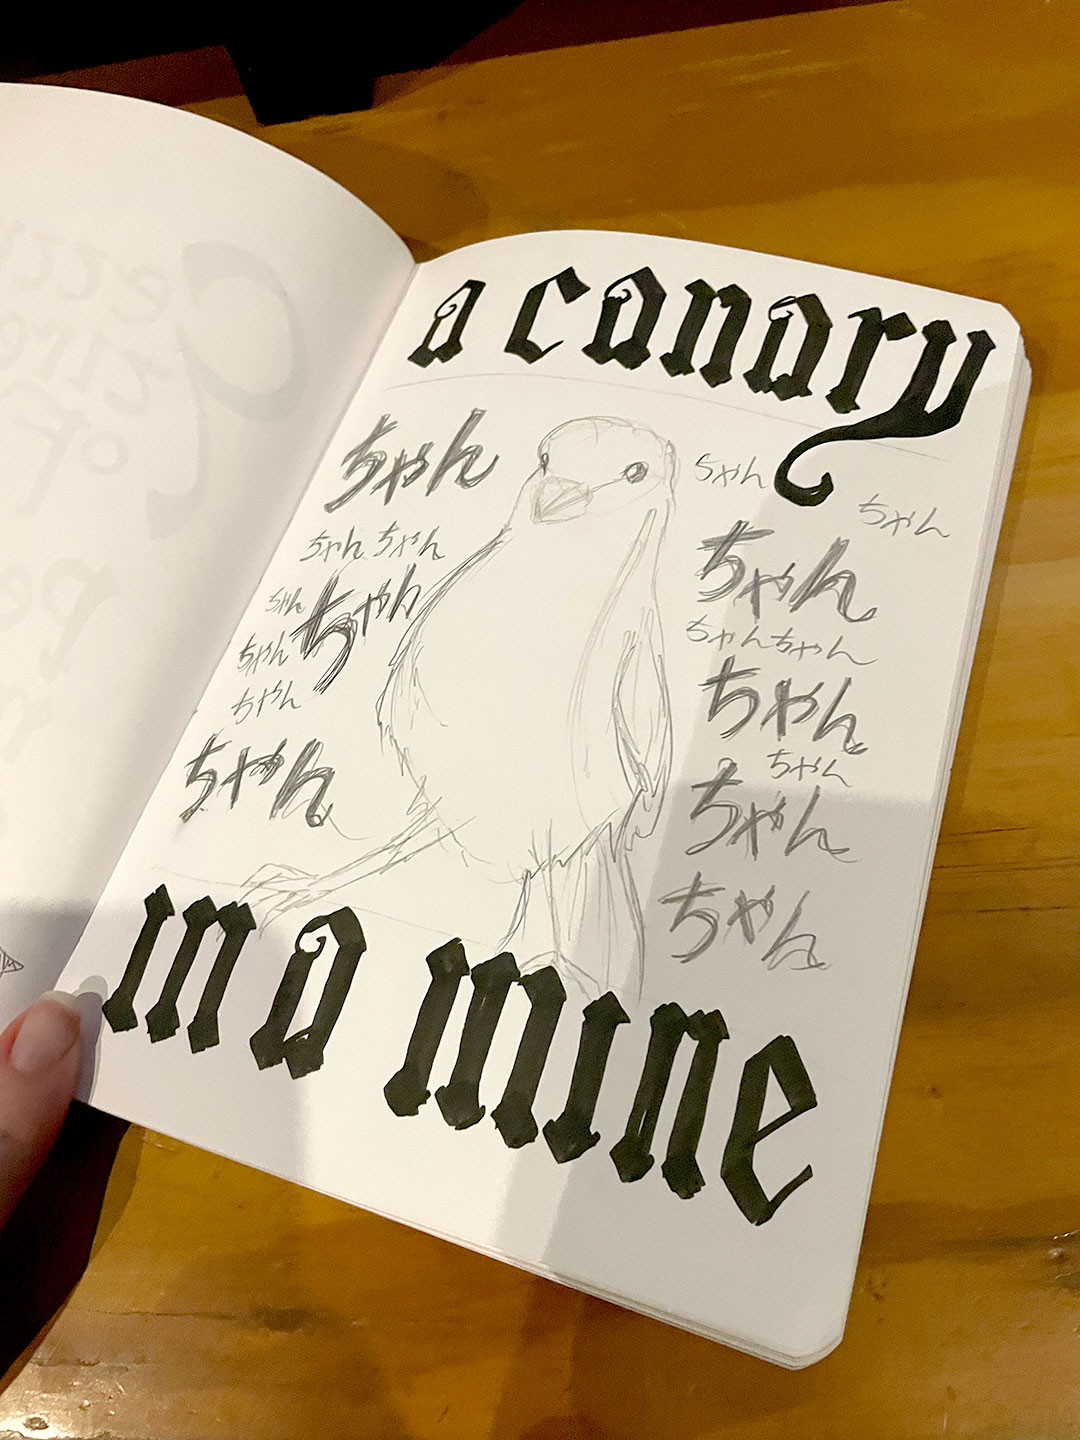 a canary
ちゃん
ちゃん ちゃん
ちゃん ちゃん
ちゃん
ちゃん
ちゃん
ちゃん
ちゃん
ちゃん
ちゃんちゃん
ちゃん
ちゃん
ちゃん
ちゃん
in a mine